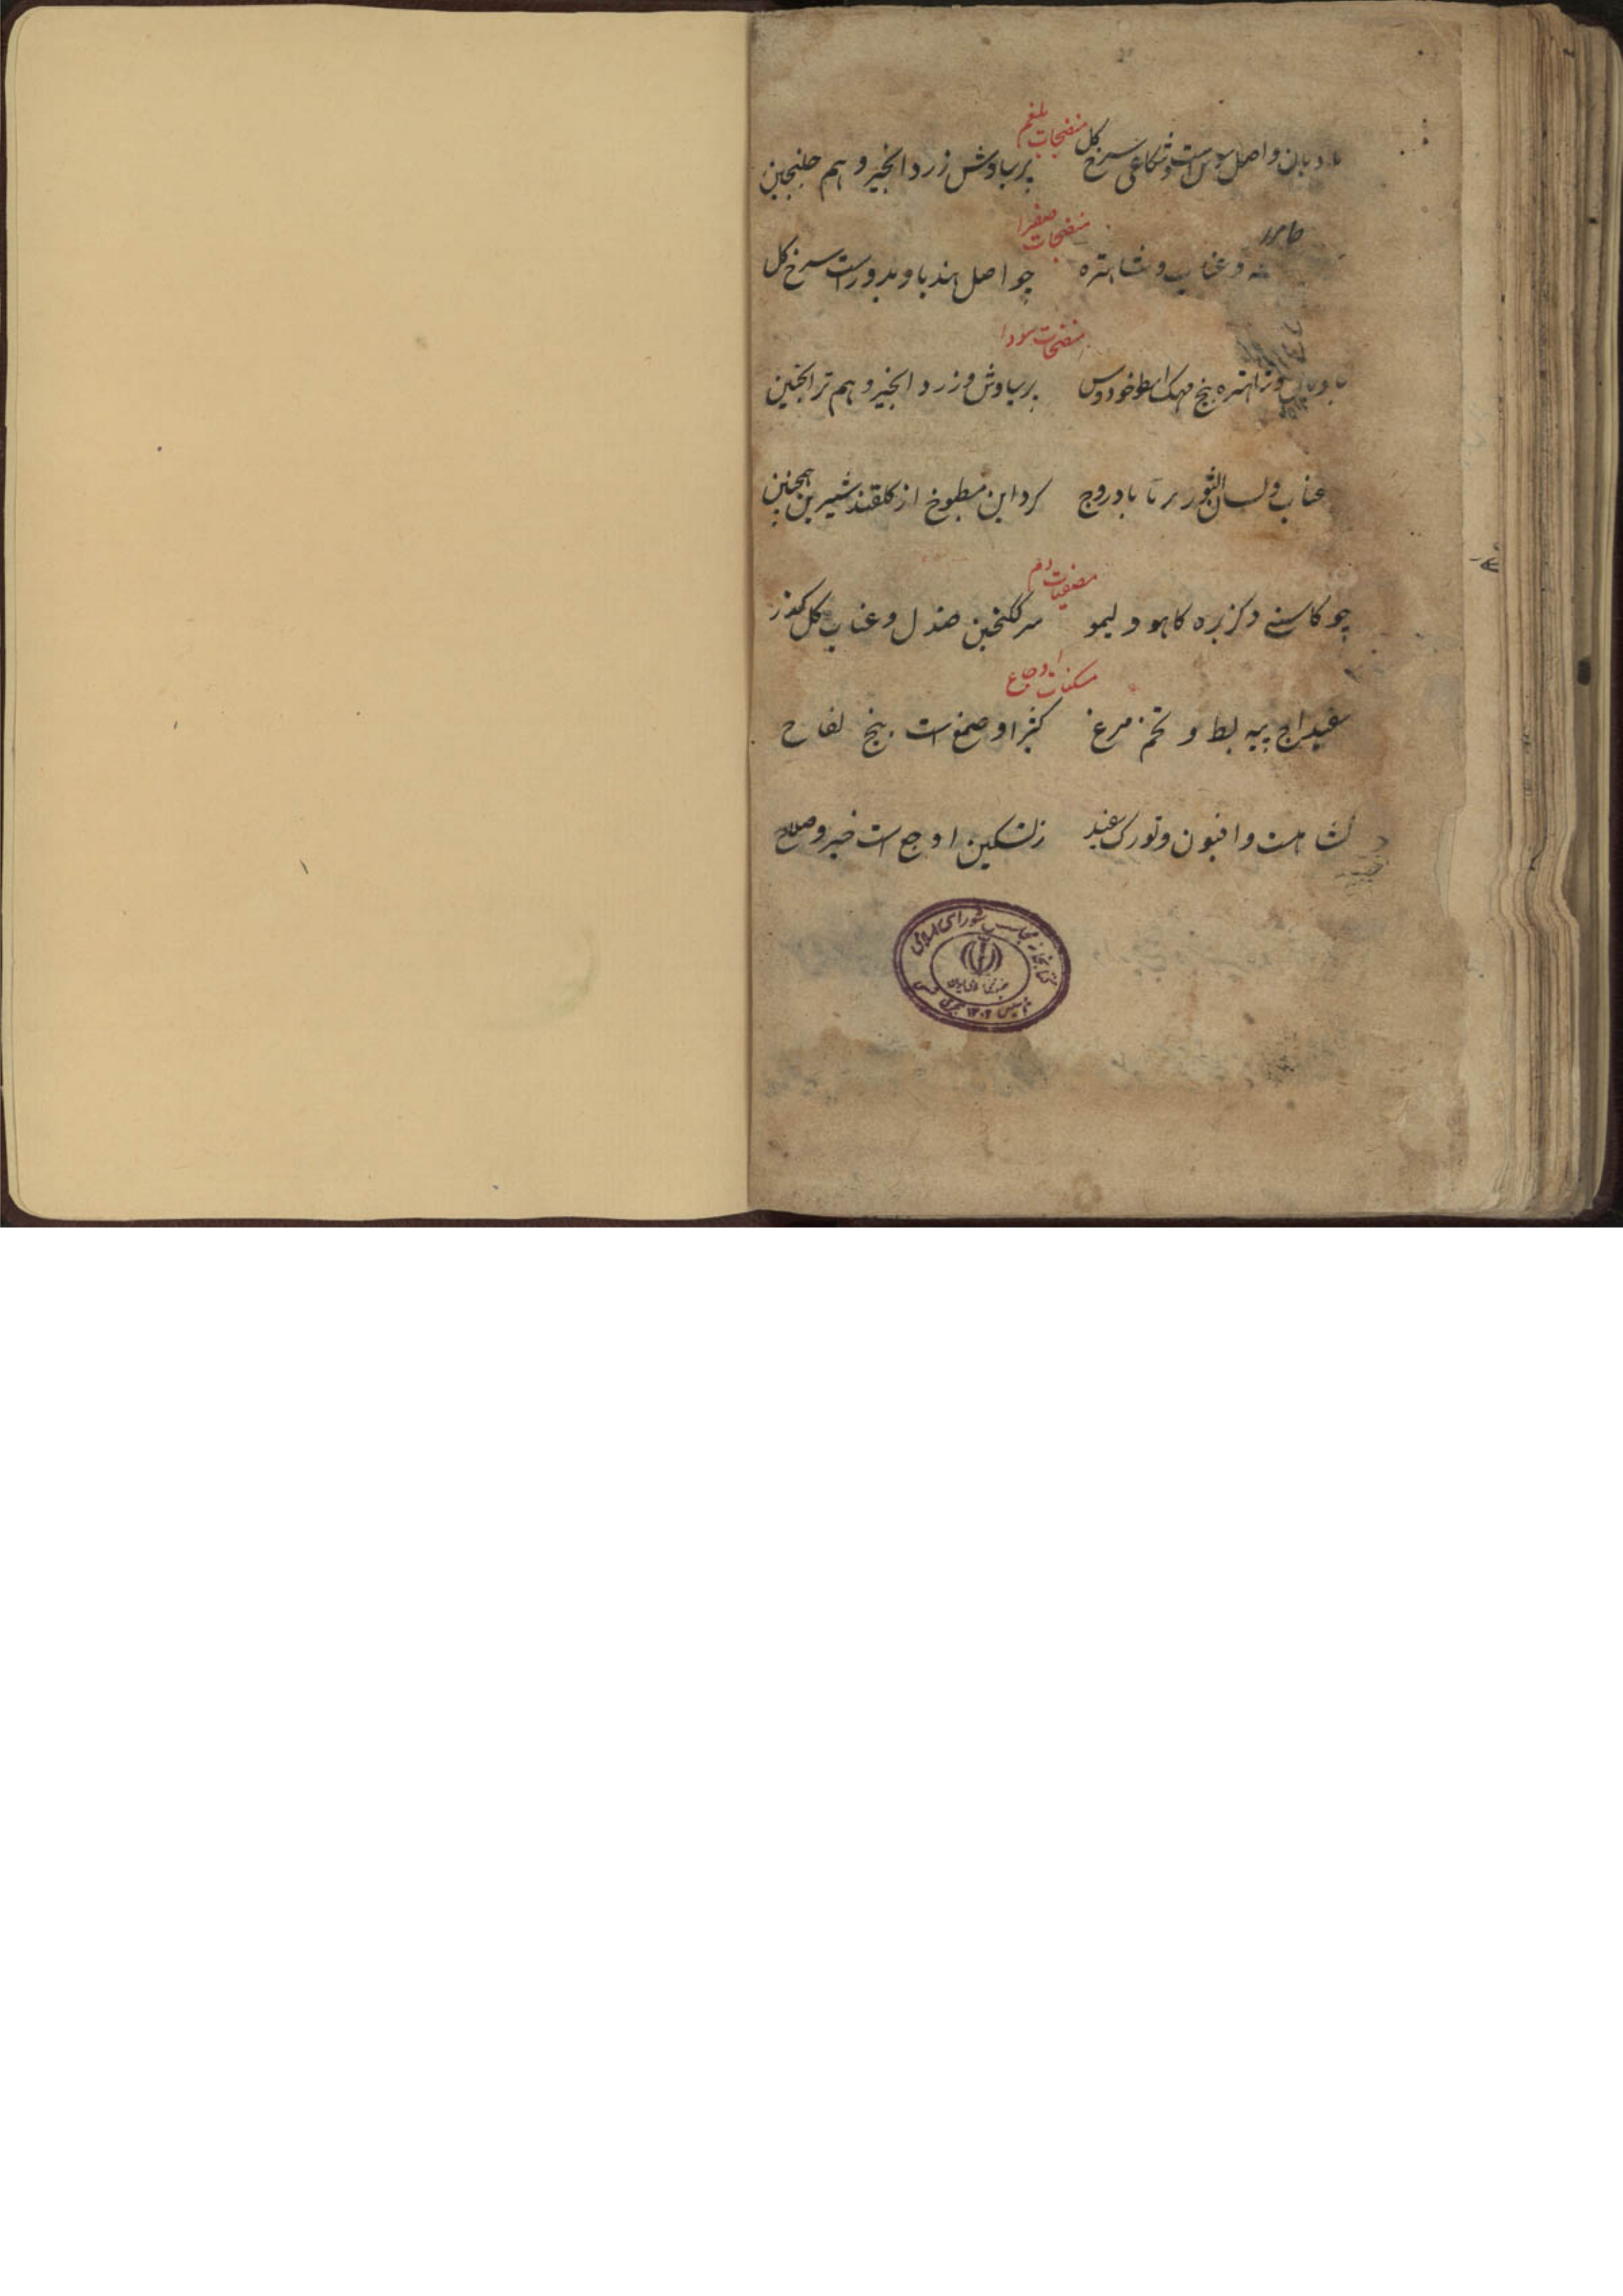 منضجات بلغم
بادیان و اصل سوس است و شکاعی سرخ گل پرسیاوش زرد انجیر و هم جلنجبین
منضجات صفرا
و عناب و شاهتره چو اصل هندبا و بدورست سرخ گل
منضجات سودا
بادیان و شاهتره بیخ مهک اسطوخودوس پرسیاوش و زرد انجیر و هم ترانجبین
عناب و لسان الثور بادروج کرد این مطبوخ از گلقند شیرین همچنین
مصفیات دم
چو کاسنی و کزبره کاهو و لیمو سرکنجبین صندل و عناب گل
مسکنات اوجاع
سفیداج پیه بط و تخم مرغ کثیرا و صمغ است بیخ لفاح
نشاهست و افیون و تورک سفید ز تسکین اوجع است خیر و صلاح
کتابخانه مجلس شورای اسلامی